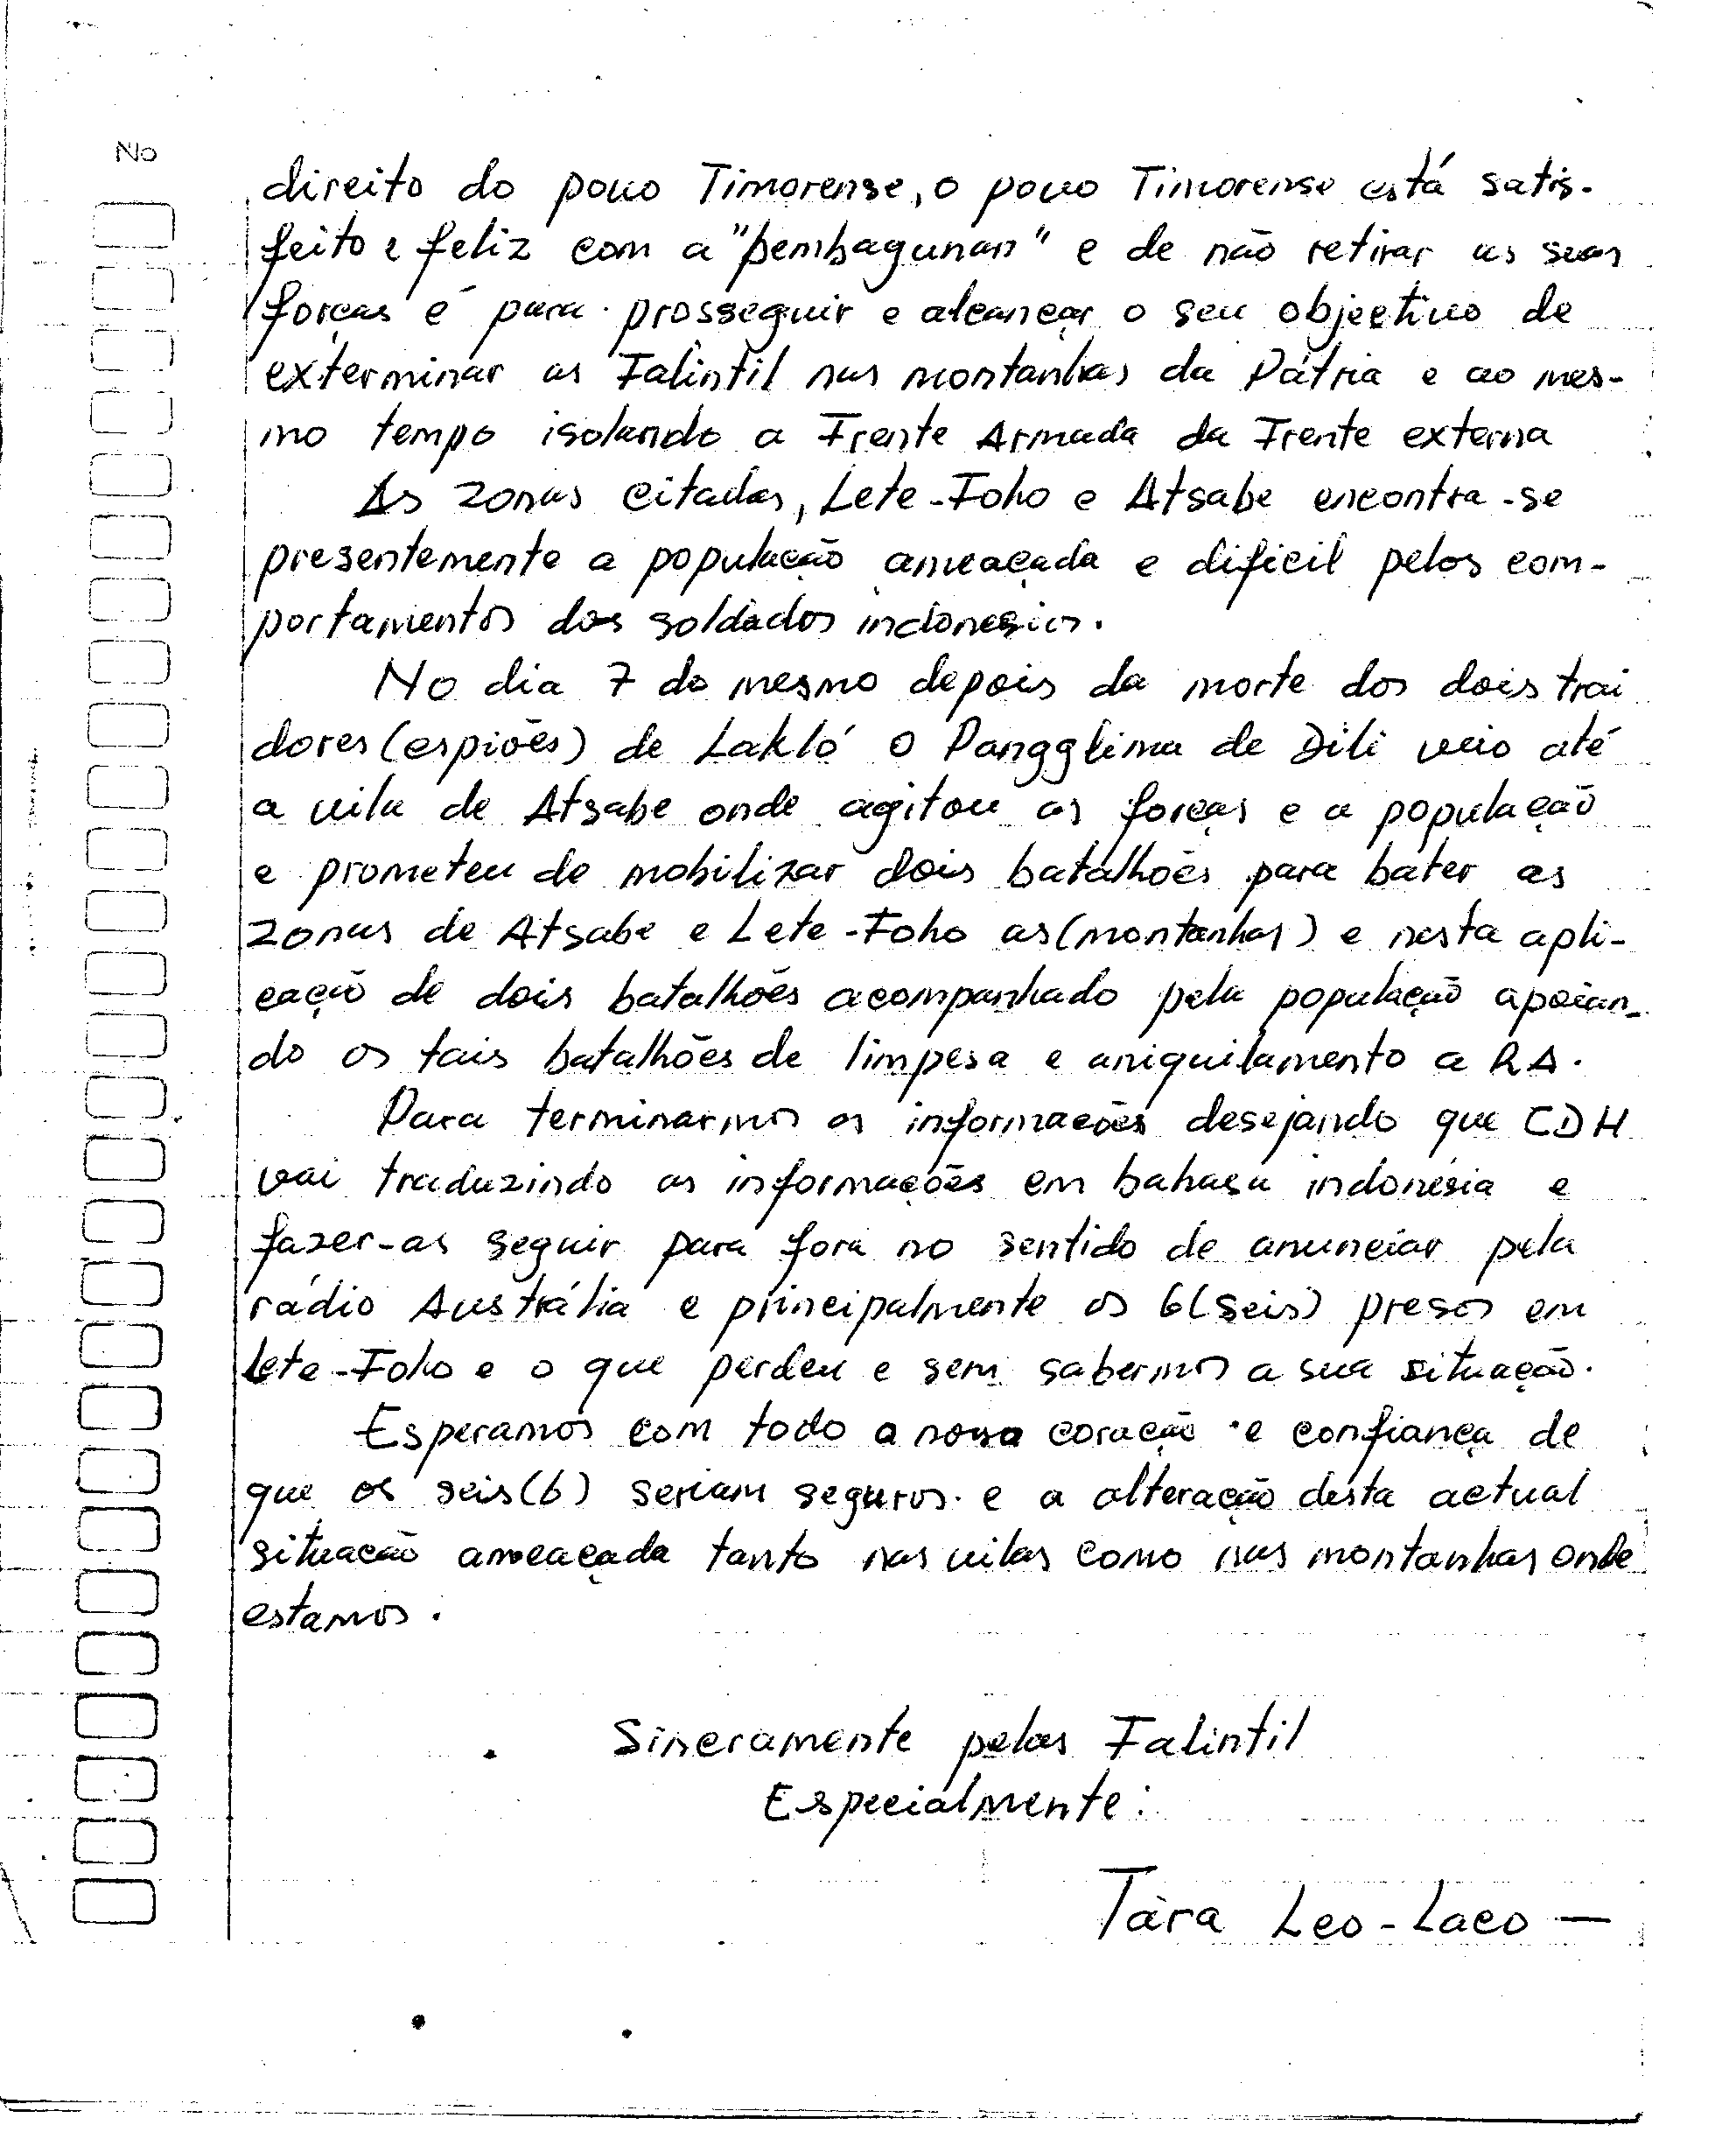 No
direito do povo Timorense, o povo Timorense está satis-
feito e feliz com a "pembagunan" e de não retirar as suas
forças é para prosseguir e alcançar o seu objectivo de
exterminar as Falintil nas montanhas da Pátria e ao mes-
mo tempo isolando a Frente Armada da Frente externa
As zonas citadas, Lete-Foho e Atsabe encontra-se
presentemente a população ameaçada e dificil pelos com-
portamentos dos soldados indonesios.
No dia 7 do mesmo depois da morte dos dois trai
dores (espiões) de Lakló o Pangglima de Dili veio até
a vila de Atsabe onde agitou as forças e a população
e prometeu de mobilizar dois batalhões para bater as
zonas de Atsabe e Lete-Foho as (montanhas) e nesta apli-
cação de dois batalhões acompanhado pela população apoian-
do os tais batalhões de limpesa e aniquilamento a RA.
Para terminarmos as informações desejando que CDH
vai traduzindo as informações em bahasa indonésia e
fazer-as seguir para fora no sentido de anunciar pela
rádio Austrália e principalmente os 6(seis) presos em
Lete-Foho e o que perdeu e sem sabermos a sua situação.
Esperamos com todo a nossa coração e confiança de
que os seis(6) seriam seguros e a alteração desta actual
situação ameaçada tanto nas vilas como nas montanhas onde
estamos.
Sinceramente pelas Falintil
Especialmente:
Tàra Leo-Laco —